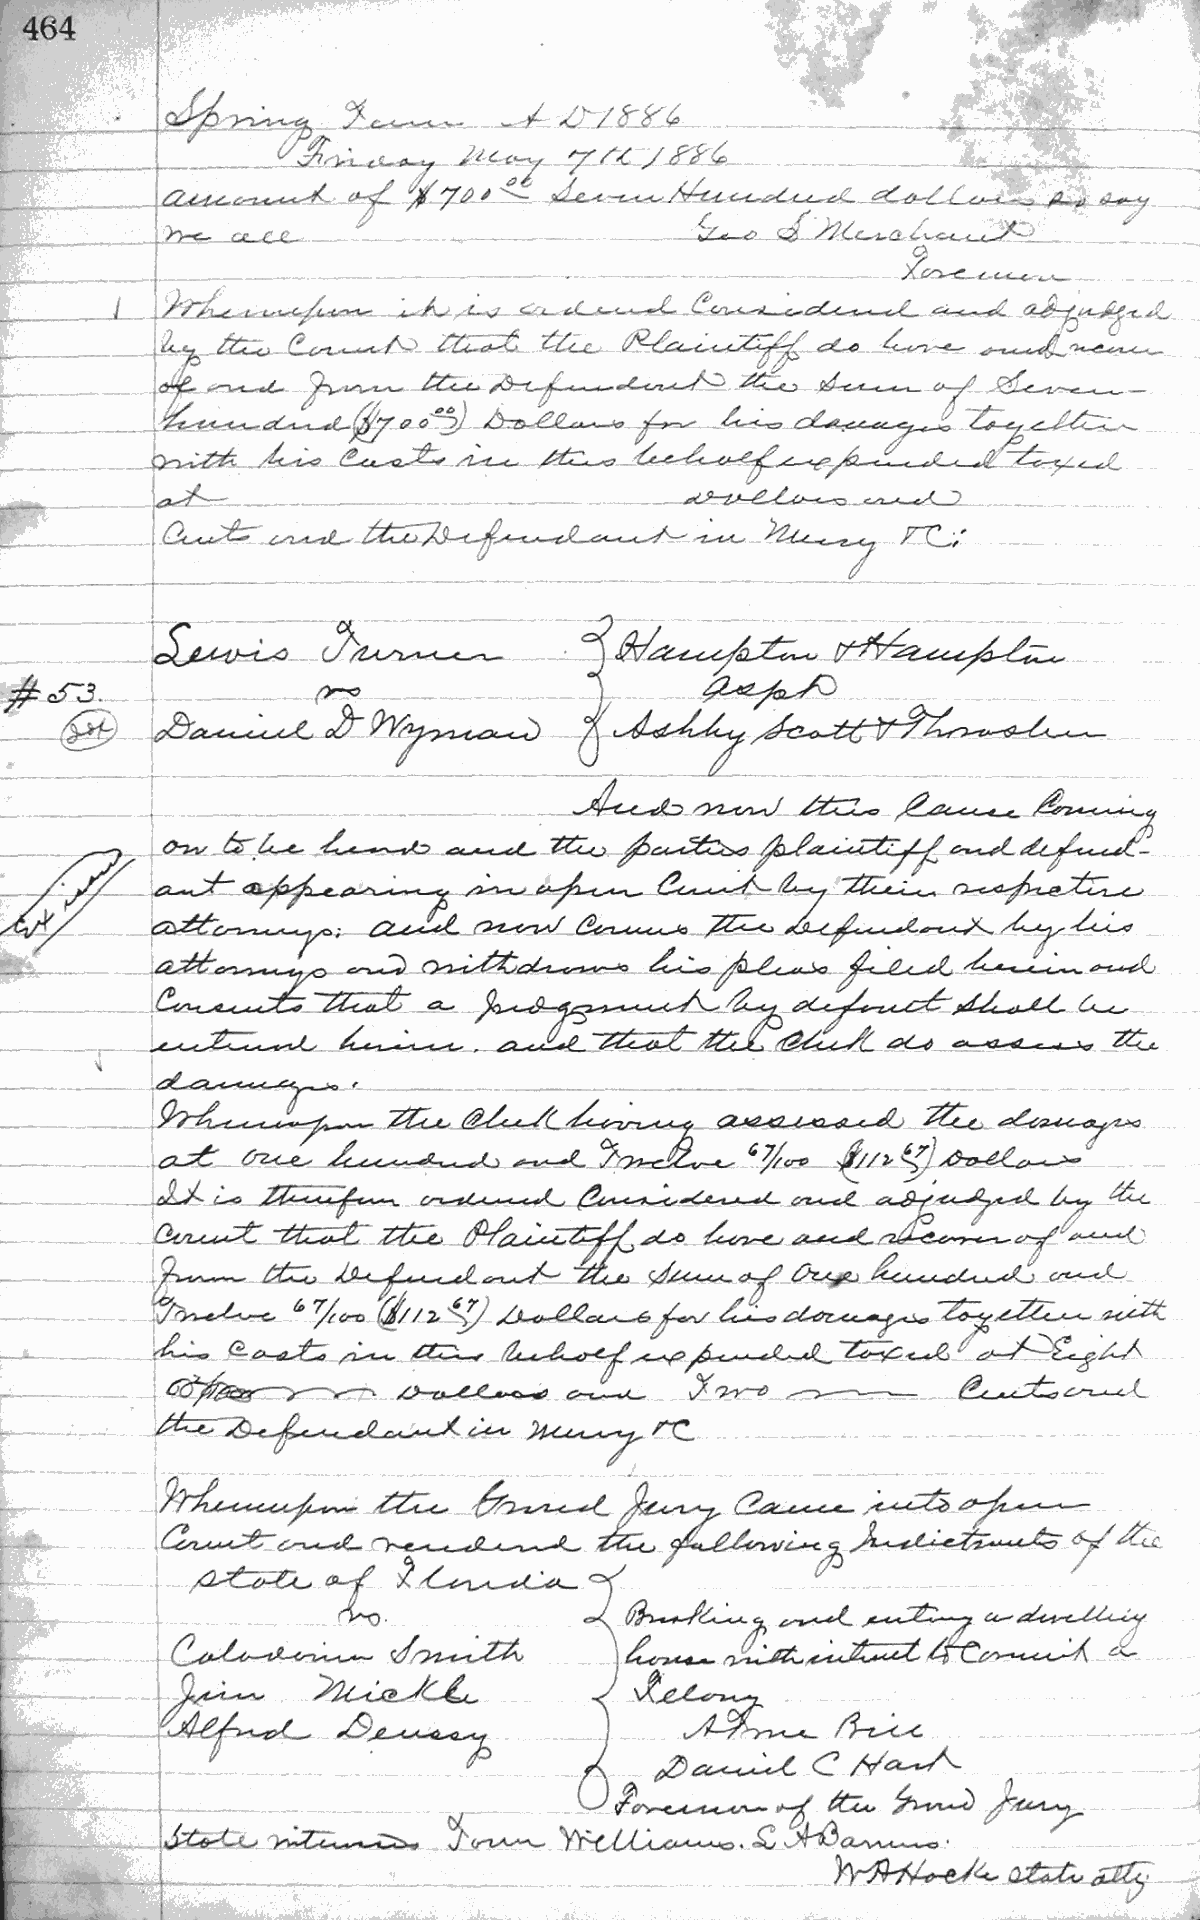 464
Spring Term A D 1886
Friday May 7th 1886
amount of $700 00 Seven Hundred dollars so say
we all Geo S Merchant
Foreman
1 Whereupon it is ordered Considered and adjudged
by the Court that the Plaintiff do have and recover
of and from the Defendant the sum of Seven-
hundred ($700 00) Dollars for his damages together
with his Costs in this behalf expended taxed
at dollars and
Cents and the Defendant in Mercy &C:
Lewis Turner Hampton & Hampton
#53. vs aspt
Daniel D Wyman Ashby Scott & Thrasher
And now this Cause Coming
on to be heard and the parties plaintiff and defend-
ant appearing in open Court by their respective
attorneys: and now Comes the Defendant by his
attorneys and withdraws his pleas filed herein and
Consents that a judgment by default shall be
entered herein. and that the Clerk do assess the
damages.
Whereupon the Clerk having assessed the damages
at one hundred and Twelve 67/100 ($112 67) Dollars
It is therefore ordered Considered and adjudged by the
Court that the Plaintiff do have and recover of and
from the Defendant the sum of One hundred and
Twelve 67/100 ($112 67) Dollars for his damages together with
his Costs in this behalf expended taxed at Eight
Dollars and Two Cents and
the Defendant in Mercy &C
Whereupon the Grand Jury Came into open
Court and rendered the following Indictments of the
State of Florida
vs. Breaking and entering a dwelling
Caladonia Smith house with intent to Commit a
Jim Mickle Felony
Alfred Deussy A True Bill
Daniel C Hart
Foreman of the Grand Jury
State witnesses Tom Williams. L A Barnes.
W A Hocker State atty